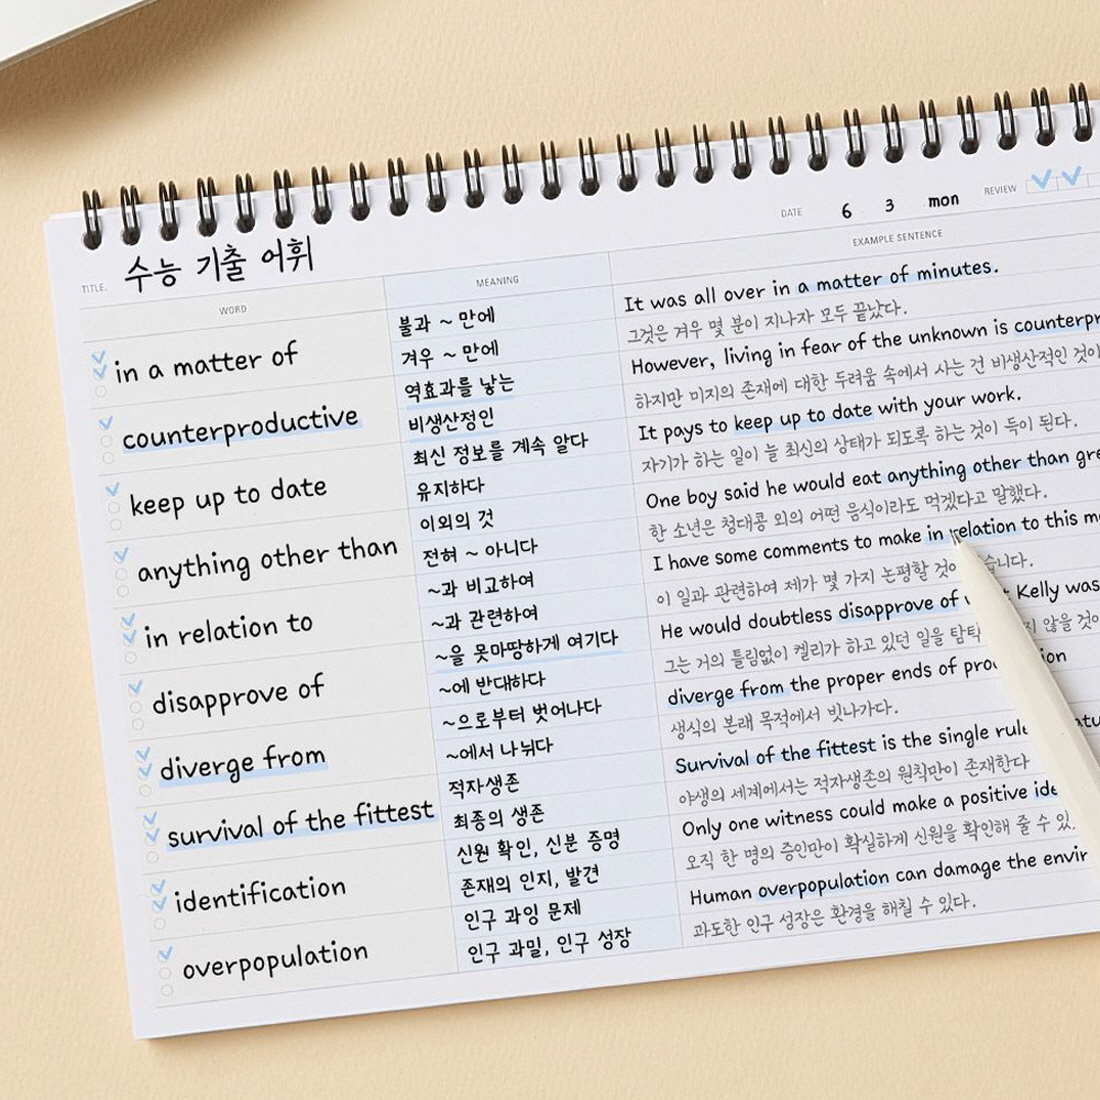 TITLE. 수능 기출 어휘
DATE 6 3 mon
REVIEW
WORD
MEANING
EXAMPLE SENTENCE
in a matter of
불과 ~ 만에
겨우 ~ 만에
It was all over in a matter of minutes.
그것은 겨우 몇 분이 지나자 모두 끝났다.
counterproductive
역효과를 낳는
비생산적인
However, living in fear of the unknown is
하지만 미지의 존재에 대한 두려움 속에서 사는 건 비생산적인
keep up to date
최신 정보를 계속 알다
유지하다
It pays to keep up to date with your work.
자기가 하는 일이 늘 최신의 상태가 되도록 하는 것이 득이 된다.
anything other than
이외의 것
전혀 ~ 아니다
One boy said he would eat anything other than
한 소년은 청대콩 외의 어떤 음식이라도 먹겠다고 말했다.
in relation to
~과 비교하여
~과 관련하여
I have some comments to make in relation to this
이 일과 관련하여 제가 몇 가지 논평할
disapprove of
~을 못마땅하게 여기다
~에 반대하다
He would doubtless disapprove of Kelly was
그는 거의 틀림없이 켈리가 하고 있던 일을 않을
diverge from
~으로부터 벗어나다
~에서 나뉘다
diverge from the proper ends of
생식의 본래 목적에서 빗나가다.
survival of the fittest
적자생존
최종의 생존
Survival of the fittest is the single
야생의 세계에서는 적자생존의 원칙만이 존재한다
identification
신원 확인, 신분 증명
존재의 인지, 발견
Only one witness could make a positive
오직 한 명의 증인만이 확실하게 신원을 확인해 줄 수
overpopulation
인구 과잉 문제
인구 과밀, 인구 성장
Human overpopulation can damage the
과도한 인구 성장은 환경을 해칠 수 있다.